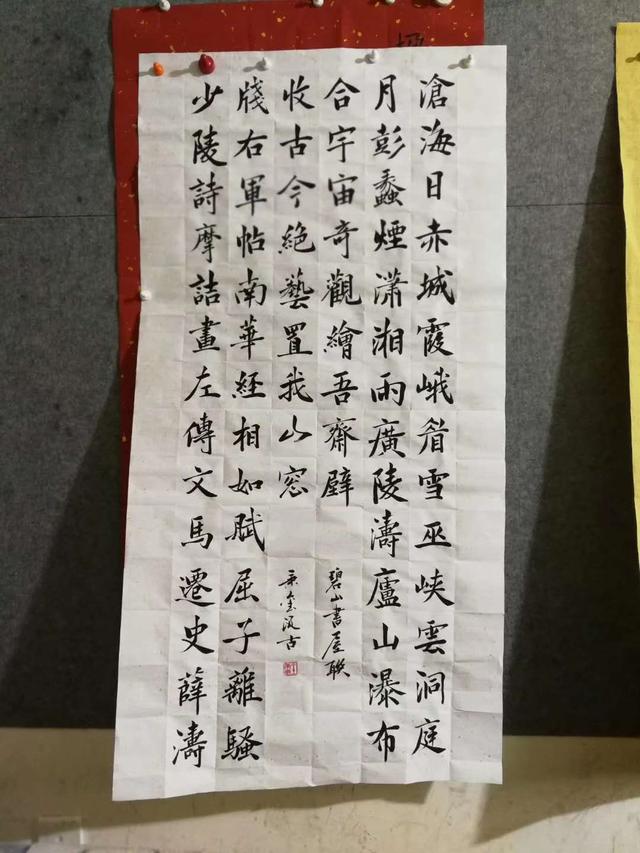 滄海日赤城霞峨眉雪巫峽雲洞庭
月彭蠡煙瀟湘雨廣陵濤廬山瀑布
合宇宙奇觀繪吾齋壁
碧山書屋聯
少陵詩摩詰畫左傳文馬遷史薛濤
牋右軍帖南華経相如賦屈子離騷
收古今絕藝置我山窓
汲古